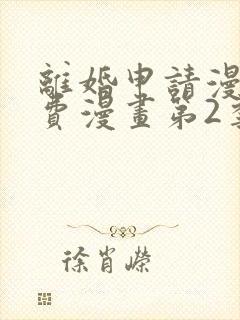 離婚申請漫
費漫畫第2季
徐肖嶸